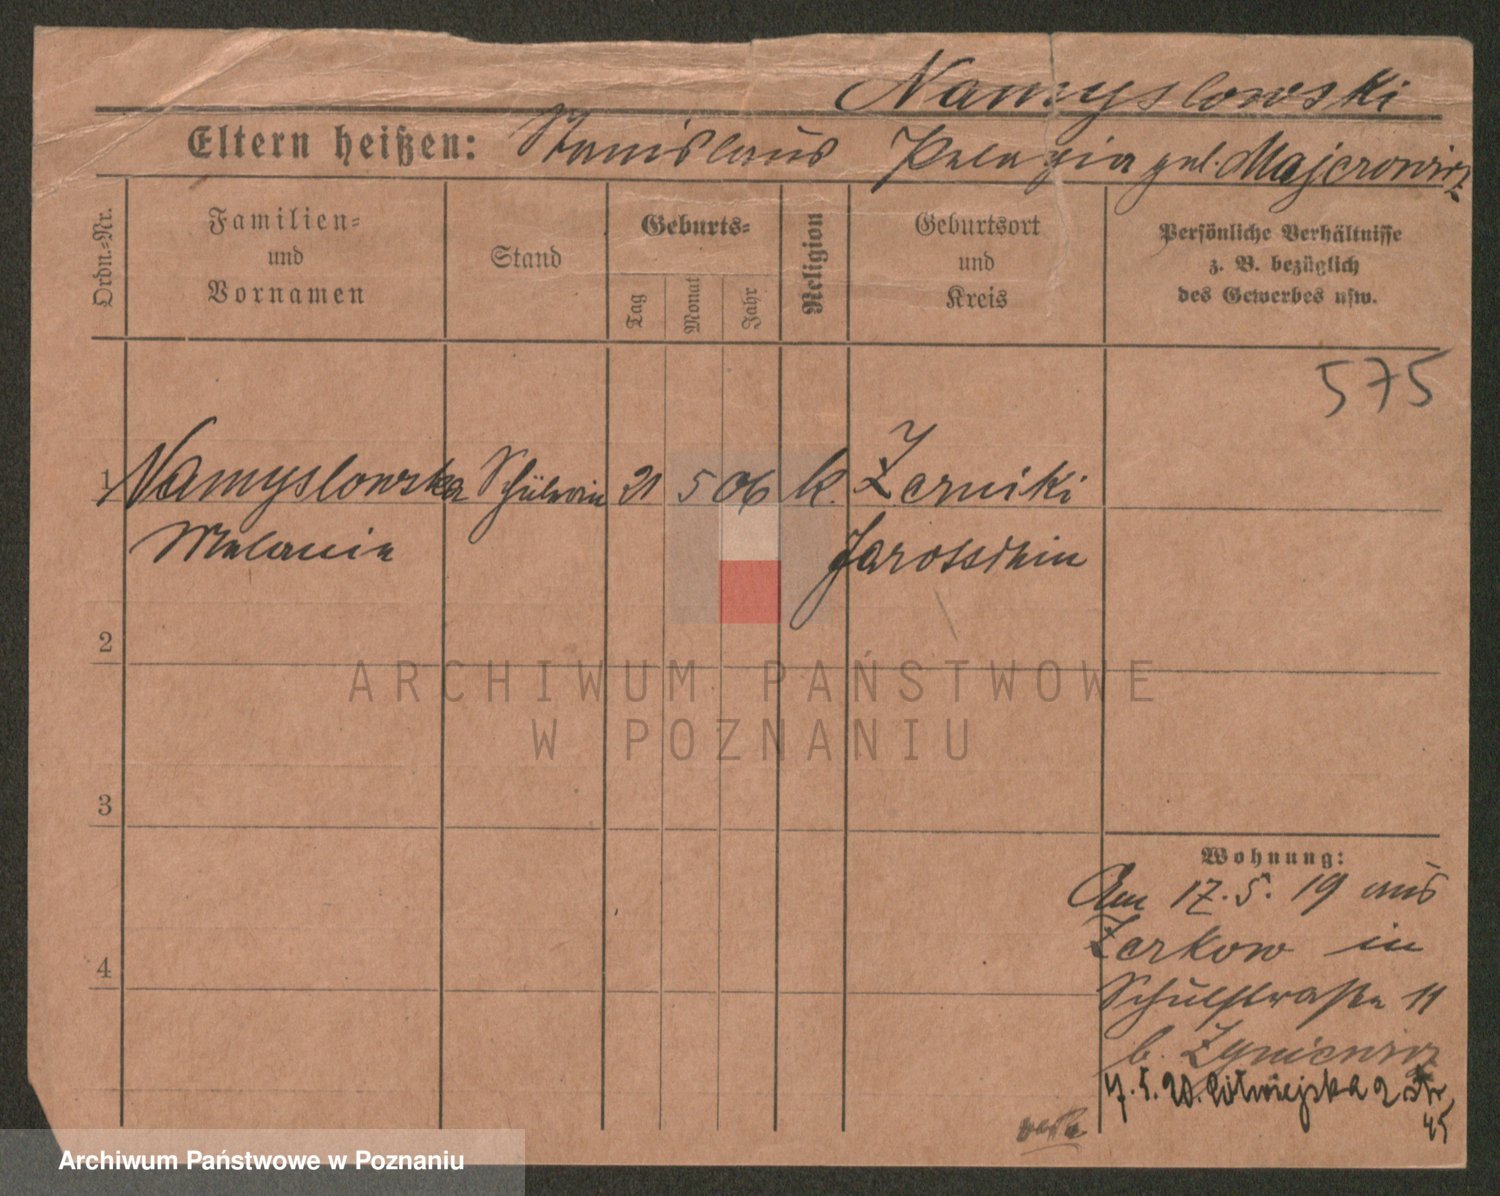 Namyslowski
Eltern heißen: Stanislaus Pelagia gel. Majcrowicz
Ordn.=Nr.
Familien=
und
Vornamen
Stand
Geburts=
Tag
Monat
Jahr
Religion
Geburtsort
und
Kreis
Persönliche Verhältnisse
z. B. bezüglich
des Gewerbes usw.
575
1 Namyslowska Schülerin 21 5 06 k. Żerniki
Melanie Jarotschin
2
ARCHIWUM PAŃSTWOWE
W POZNANIU
3
Wohnung:
Am 17.5.19 aus
Zerkow in
4
Schulstraße 11
b.
7.5.20.
45
Archiwum Państwowe w Poznaniu